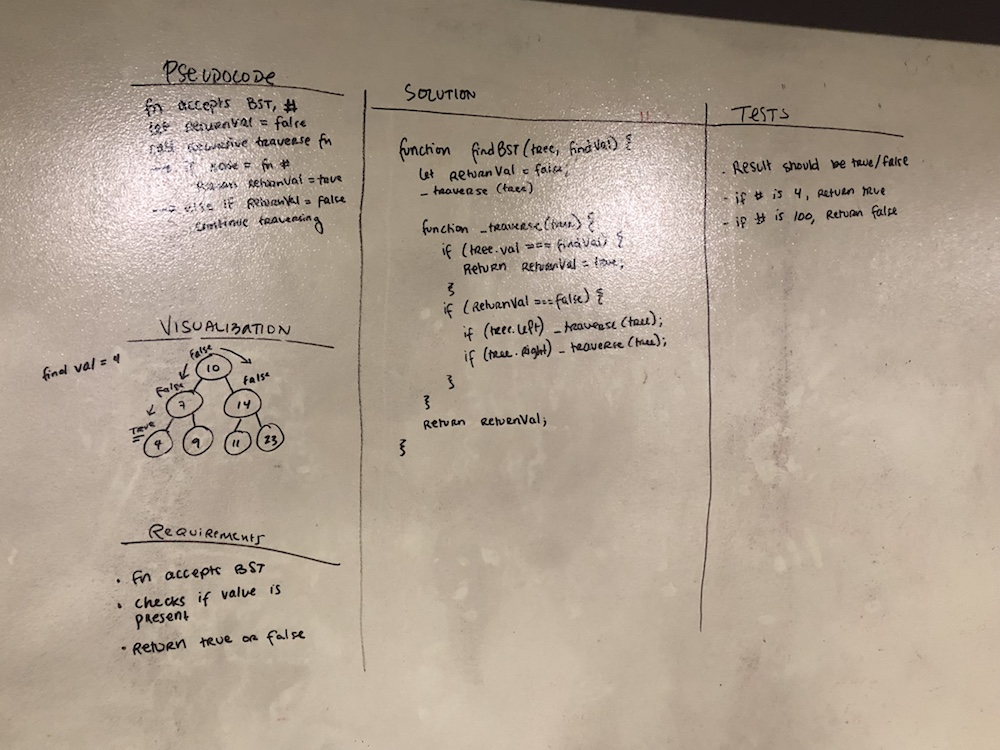 PSEUDOCODE
fn accepts BST, #
let returnVal = false
call recursive traverse fn
--> if node = fn #
return returnVal = true
--> else if returnVal = false
continue traversing
VISUALIZATION
find val = 4
False
10
False
False
7
14
True
4
9
11
23
Requirements
• fn accepts BST
• checks if value is
present
• Return true or false
SOLUTION
function findBST(tree, findVal) {
let returnVal = false;
_traverse(tree)
function _traverse(tree) {
if (tree.val === findVal) {
Return returnVal = true;
}
if (returnVal === false) {
if (tree.left) _traverse(tree);
if (tree.right) _traverse(tree);
}
}
Return returnVal;
}
TESTS
- Result should be true/false
- if # is 4, return true
- if # is 100, Return false